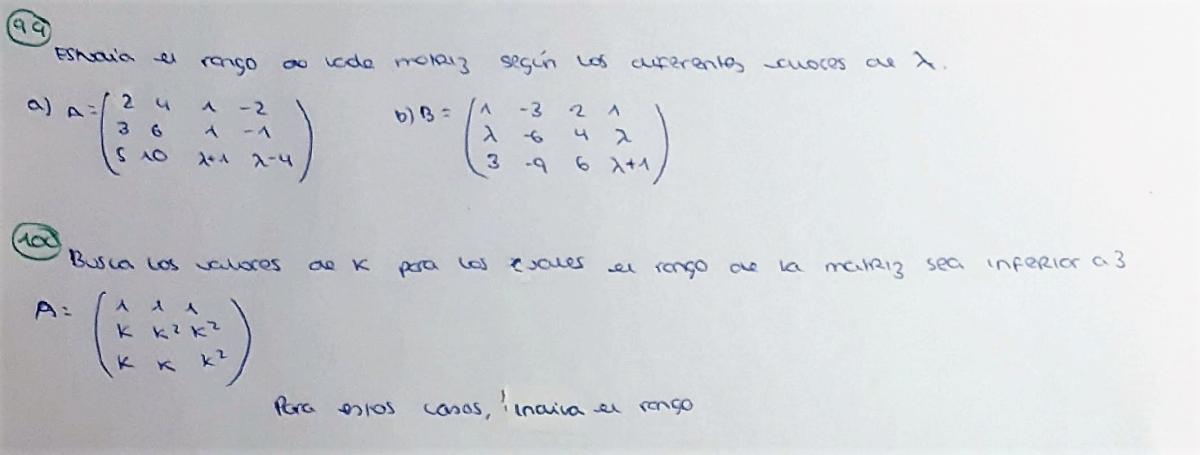 99
Estudia el rango de cada matriz según los diferentes valores de λ.
a) A = ( 2 4 1 -2 b) B = ( 1 -3 2 1
3 6 1 -1 λ -6 4 λ
5 10 λ+1 λ-4 ) 3 -9 6 λ+1 )
100
Busca los valores de K para los cuales el rango de la matriz sea inferior a 3
A = ( 1 1 1
K K² K²
K K K² )
Para estos casos, indica el rango